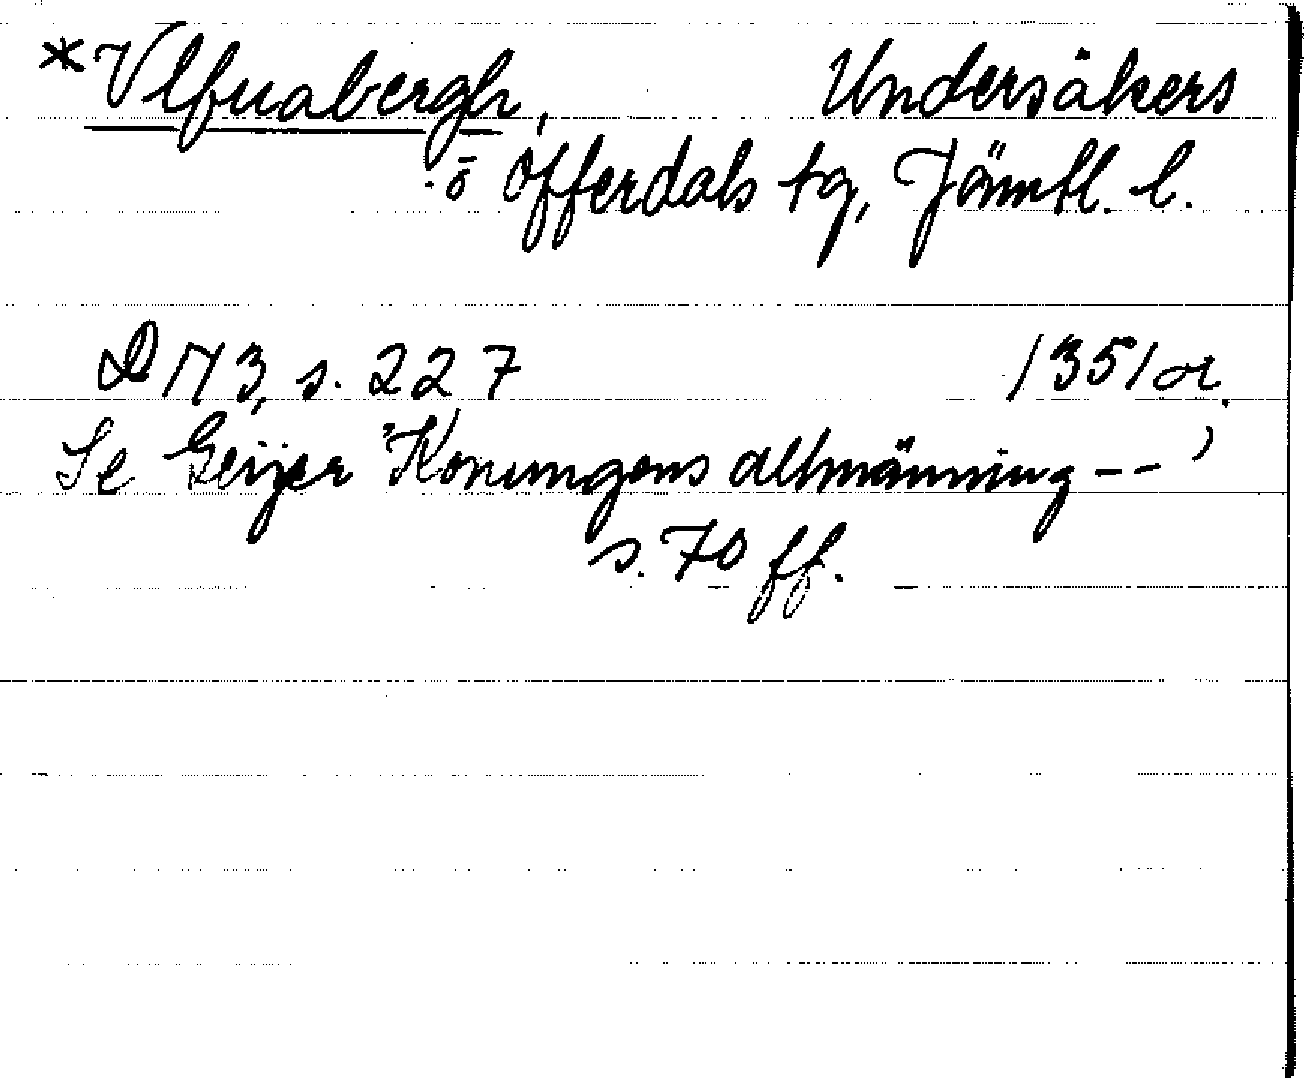 *Vlfuabergh, Undersåkers
o Offerdals tg, Jämtl. l.
DN 3, s. 227 1351 or.
Se Geijer "Konungens allmänning --"
s. 70 ff.